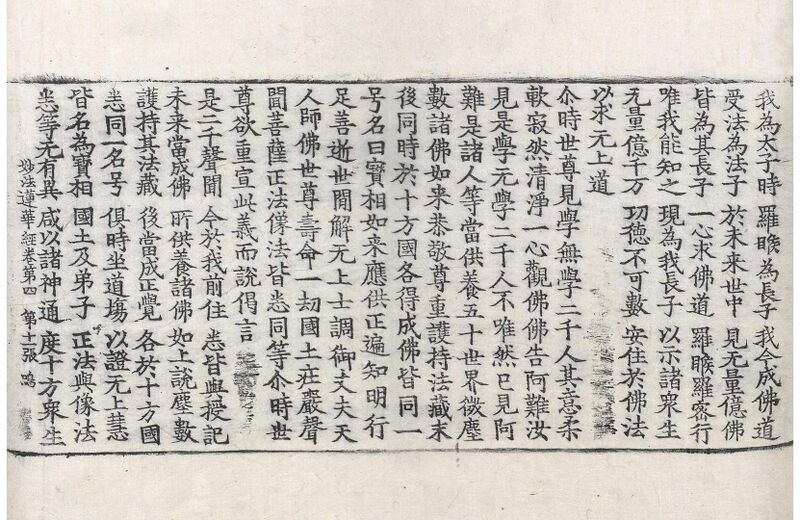 我為太子時 羅睺為長子 我今成佛道
受法為法子 於未来世中 見无量億佛
皆為其長子 一心求佛道 羅睺羅密行
唯我能知之 現為我長子 以示諸衆生
无量億千万 㓛德不可數 安住於佛法
以求无上道
尒時世尊見學無學二千人其意柔
軟寂然清淨一心觀佛佛告阿難汝
見是學无學二千人不唯然已見阿
難是諸人等當供養五十世界微塵
數諸佛如来恭敬尊重護持法藏末
後同時於十方國各得成佛皆同一
号名曰寶相如来應供正遍知明行
足善逝世間解无上士調御丈夫天
人師佛世尊壽命一劫國土莊嚴聲
聞菩薩正法像法皆悉同等尒時世
尊欲重宣此義而說偈言
是二千聲聞 今於我前住 悉皆與授記
未来當成佛 所供養諸佛 如上說塵數
護持其法藏 後當成正覺 各於十方國
悉同一名号 俱時坐道場 以證无上慧
皆名為寶相 國土及弟子 正法與像法
悉等无有異 咸以諸神通 度十方衆生
妙法蓮華經卷第四 第十二張 鳴